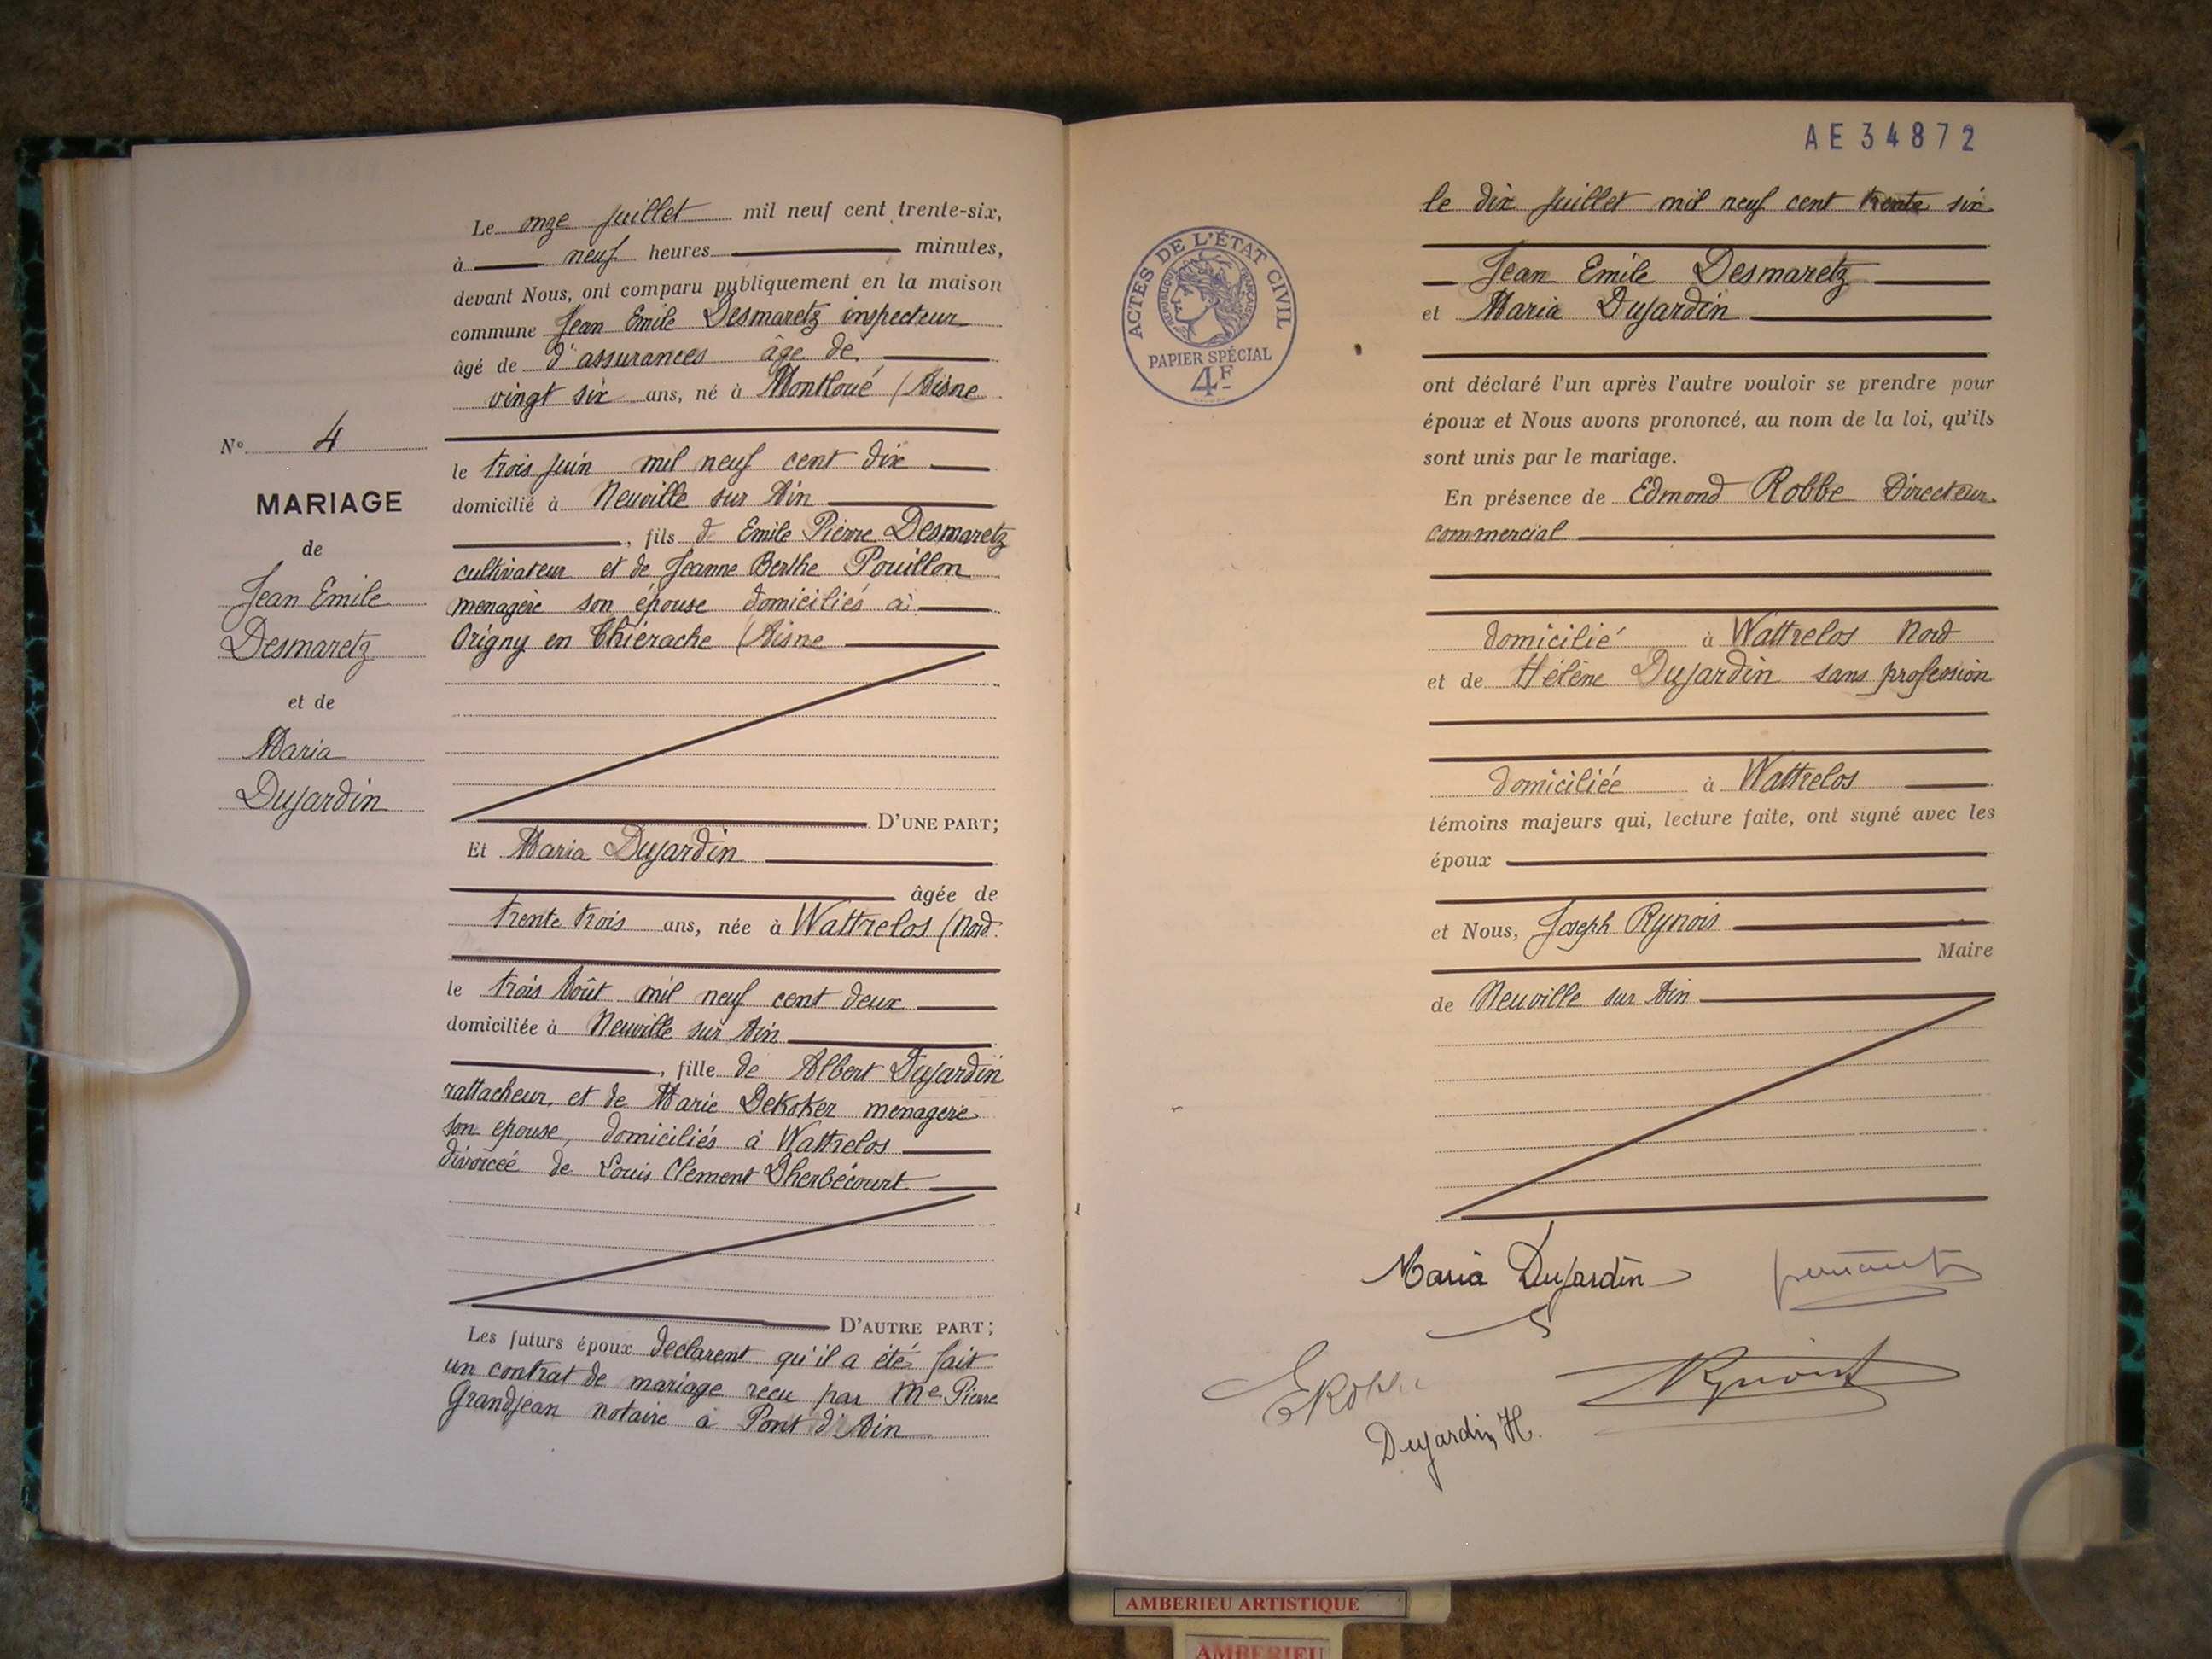 Le onze juillet mil neuf cent trente-six,
à neuf heures minutes,
devant Nous, ont comparu publiquement en la maison
commune Jean Emile Desmaretz inspecteur
âgé de d'assurances âge de
vingt six ans, né à Montloué (Aisne
le trois juin mil neuf cent dix
domicilié à Neuville sur Ain
, fils de Emile Pierre Desmaretz
cultivateur et de Jeanne Berthe Pouillon
menagère son épouse domiciliés à
Origny en Thiérache (Aisne
D'UNE PART;
Et Maria Dujardin
âgée de
trente trois ans, née à Wattrelos (Nord
le trois Août mil neuf cent deux
domiciliée à Neuville sur Ain
, fille de Albert Dujardin
rattacheur, et de Marie Dekoker menagere
son epouse, domiciliés à Wattrelos
divorcée de Louis Clement Dherbécourt
D'AUTRE PART;
Les futurs époux declarent qu'il a été fait
un contrat de mariage recu par Me Pierre
Grandjean notaire à Pont d'Ain
No 4
MARIAGE
de
Jean Emile
Desmaretz
et de
Maria
Dujardin
AE34872
le dix juillet mil neuf cent trente six
Jean Emile Desmaretz
et Maria Dujardin
ont déclaré l'un après l'autre vouloir se prendre pour
époux et Nous avons prononcé, au nom de la loi, qu'ils
sont unis par le mariage.
En présence de Edmond Robbe Directeur
commercial
domicilié à Wattrelos Nord
et de Hélène Dujardin sans profession
domiciliée à Wattrelos
témoins majeurs qui, lecture faite, ont signé avec les
époux
et Nous, Joseph Rynois
Maire
de Neuville sur Ain
Maria Dujardin
ERobbe
Rynois
Dujardin H.
ACTES DE L'ÉTAT CIVIL
RÉPUBLIQUE FRANÇAISE
PAPIER SPÉCIAL
4F
AMBERIEU ARTISTIQUE
AMBERIEU